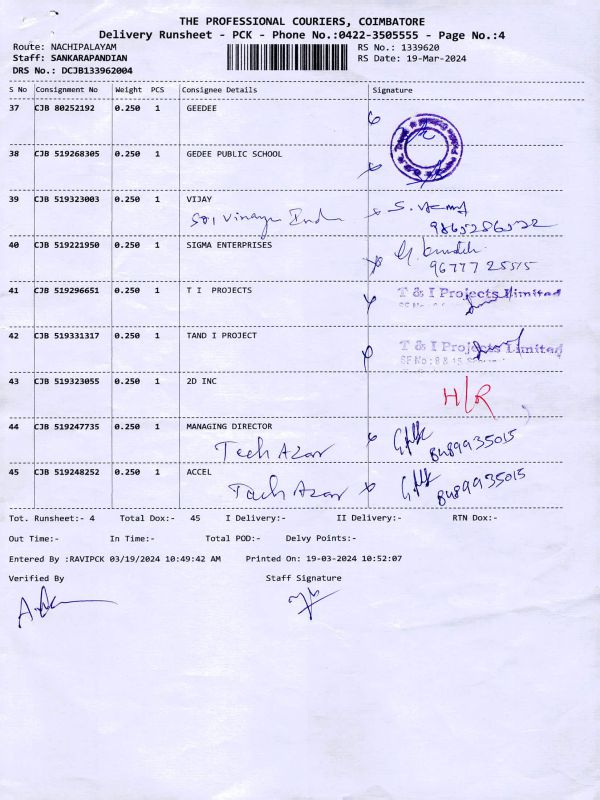 THE PROFESSIONAL COURIERS, COIMBATORE
Delivery Runsheet - PCK - Phone No.:0422-3505555 - Page No.:4
Route: NACHIPALAYAM RS No.: 1339620
Staff: SANKARAPANDIAN RS Date: 19-Mar-2024
DRS No.: DCJB133962004
S No Consignment No Weight PCS Consignee Details Signature
37 CJB 80252192 0.250 1 GEEDEE
38 CJB 519268305 0.250 1 GEDEE PUBLIC SCHOOL
39 CJB 519323003 0.250 1 VIJAY
9865286522
40 CJB 519221950 0.250 1 SIGMA ENTERPRISES
96777 25515
41 CJB 519296651 0.250 1 T I PROJECTS T & I Projects Limited
42 CJB 519331317 0.250 1 TAND I PROJECT T & I Projects Limited
43 CJB 519323055 0.250 1 2D INC H/R
44 CJB 519247735 0.250 1 MANAGING DIRECTOR
Tech Azar 8489935015
45 CJB 519248252 0.250 1 ACCEL
Tech Azar 8489935015
Tot. Runsheet:- 4 Total Dox:- 45 I Delivery:- II Delivery:- RTN Dox:-
Out Time:- In Time:- Total POD:- Delvy Points:-
Entered By :RAVIPCK 03/19/2024 10:49:42 AM Printed On: 19-03-2024 10:52:07
Verified By Staff Signature